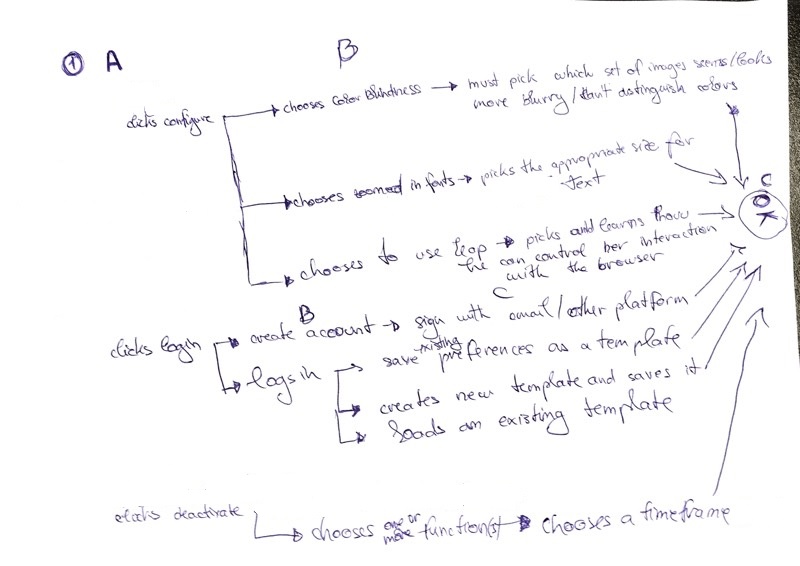 ① A
B
clicks configure
chooses Color Blindness → must pick which set of images seems/looks
more blurry / can't distinguish colors
chooses zoomed in fonts → picks the appropriate size for
text
C
OK
chooses to use leap → picks and learns how
he can control her interaction
with the browser
B
C
clicks login
create account → sign with email/other platform
logs in
save existing preferences as a template
creates new template and saves it
loads an existing template
clicks deactivate
chooses one or more function(s) → chooses a timeframe